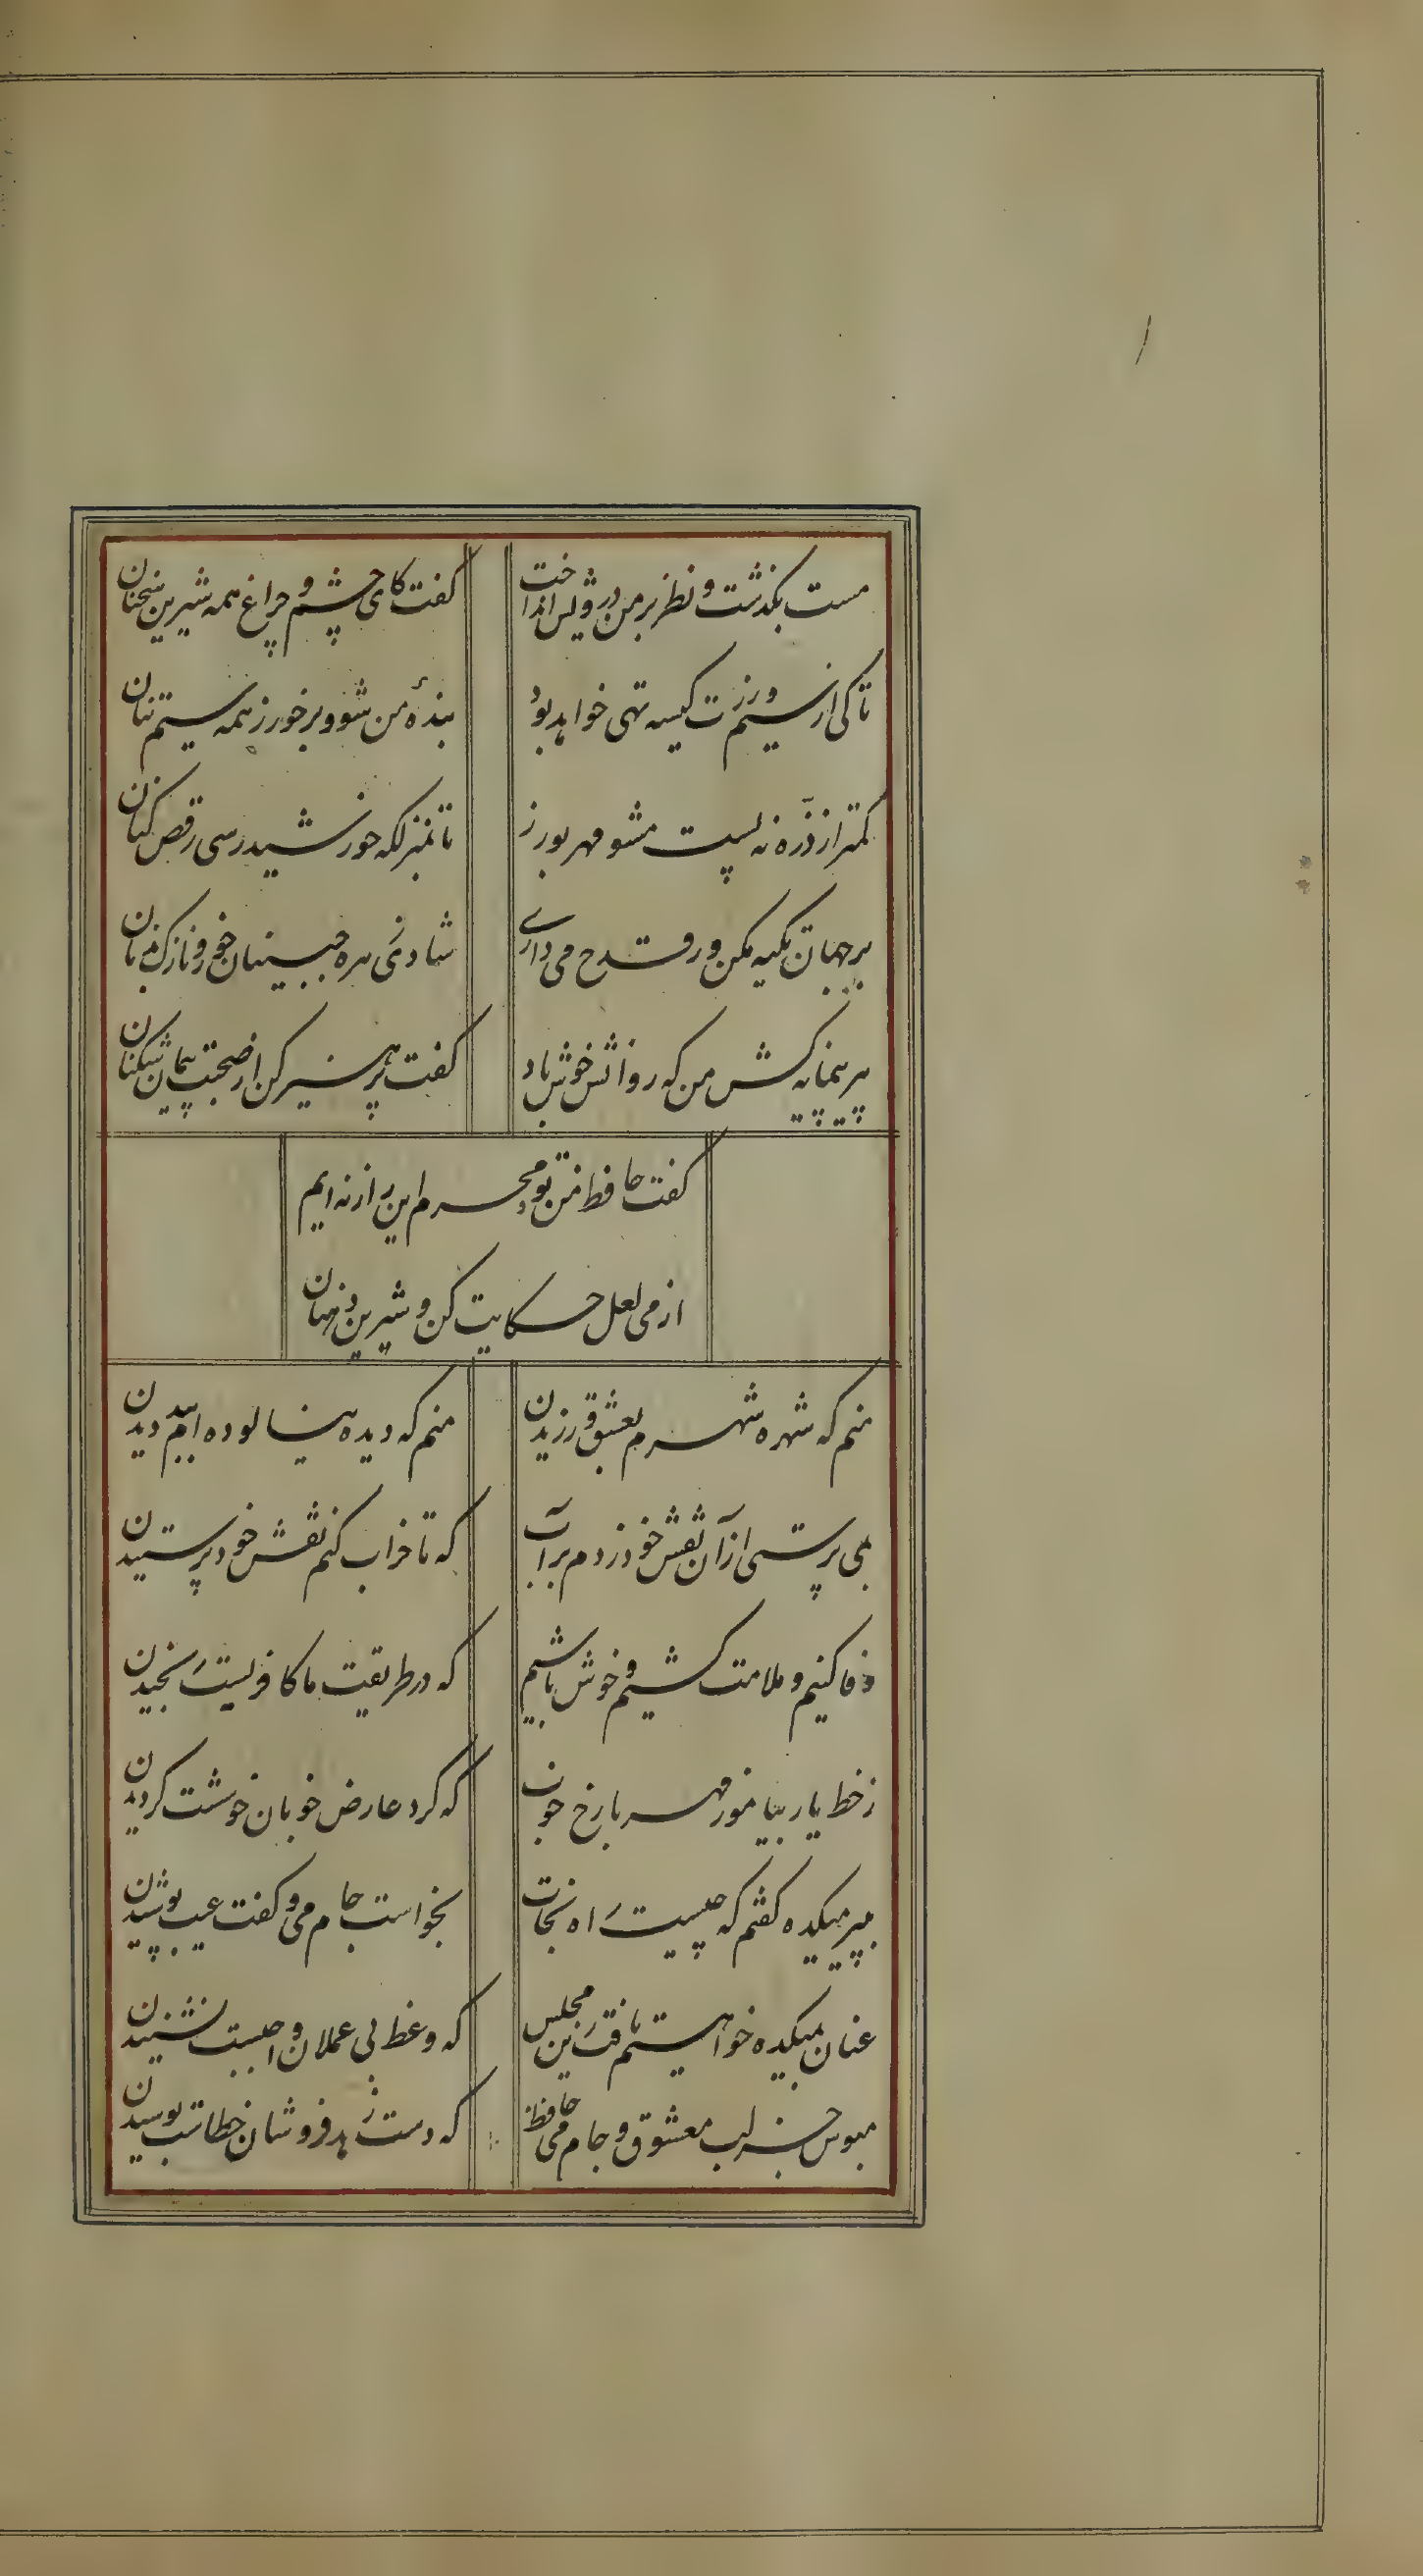 مست بگذشت و نظر بر من درویش انداخت
گفت کای چشم و چراغ همه شیرین سخنان
تا کی از سیم و زرت کیسه تهی خواهد بود
بندهٔ من شو و برخور ز همه سیم تنان
کمتر از ذره نه پست مشو مهر بورز
تا بمنزلگه خورشید رسی رقص کنان
بر جهان تکیه مکن ور قدح می داری
شادی زهره جبینان خور و نازک بدنان
پیر پیمانه کش من که روانش خوش باد
گفت پرهیز کن از صحبت پیمان شکنان
گفت حافظ من و تو محرم این راز نه ایم
از می لعل حکایت کن و شیرین دهنان
منم که شهره شهرم بعشق ورزیدن
منم که دیده نیالوده ام ببد دیدن
بمی پرستی از آن نقش خود زدم بر آب
که تا خراب کنم نقش خود پرستیدن
وفا کنیم و ملامت کشیم و خوش باشیم
که در طریقت ما کافریست رنجیدن
ز خط یار بیاموز مهر با رخ خوب
که گرد عارض خوبان خوشست گردیدن
بپیر میکده گفتم که چیست راه نجات
بخواست جام می و گفت عیب پوشیدن
عنان بمیکده خواهیم تافت زین مجلس
که وعظ بی عملان واجبست نشنیدن
مبوس جز لب معشوق و جام می حافظ
که دست زهد فروشان خطاست بوسیدن